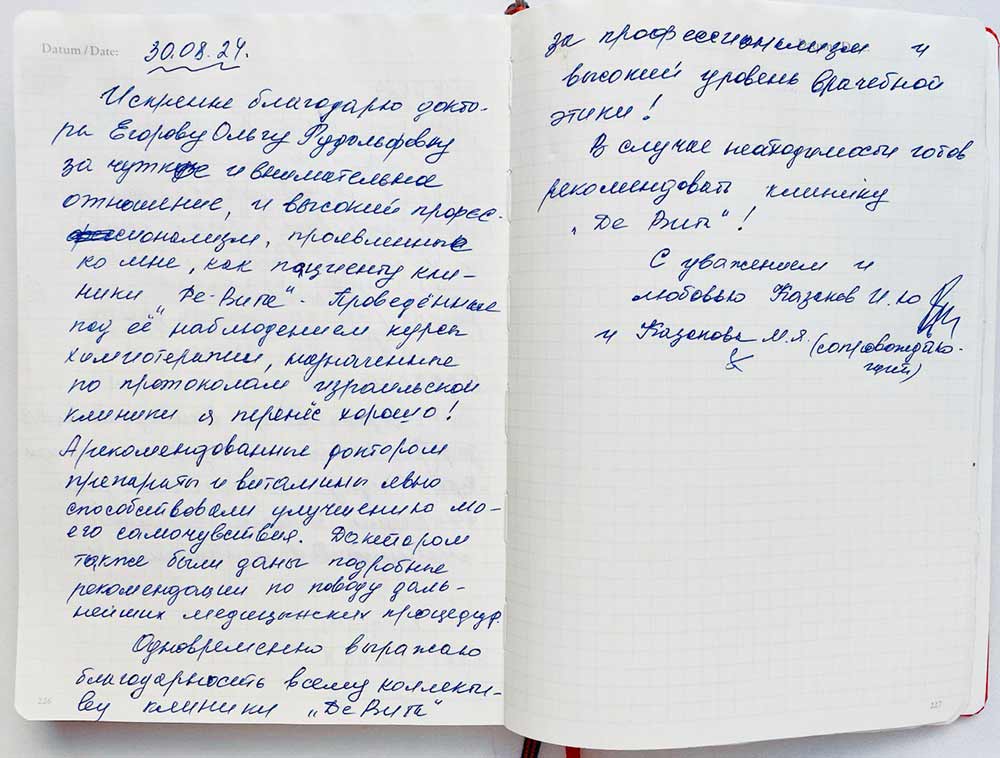 Datum / Date: 30.08.24.
Искренне благодарю докто-
ра Егорову Ольгу Рудольфовну
за чуткое и внимательное
отношение, и высокий профес-
сионализм, проявленные
ко мне, как пациенту кли-
ники „Де-Вита“. Проведённые
под её наблюдением курсы
химиотерапии, назначенные
по протоколам израильской
клиники я перенёс хорошо!
А рекомендованные доктором
препараты и витамины явно
способствовали улучшению мо-
его самочувствия. Доктором
также были даны подробные
рекомендации по поводу даль-
нейших медицинских процедур.
Одновременно выражаю
благодарность всему коллекти-
ву клиники „Де Вита“
226
за профессионализм и
высокий уровень врачебной
этики!
В случае необходимости готов
рекомендовать клинику
„Де Вита“!
С уважением и
любовью Казаков И.Ю
и Казакова М.Я. (сопровождаю-
щий)
227